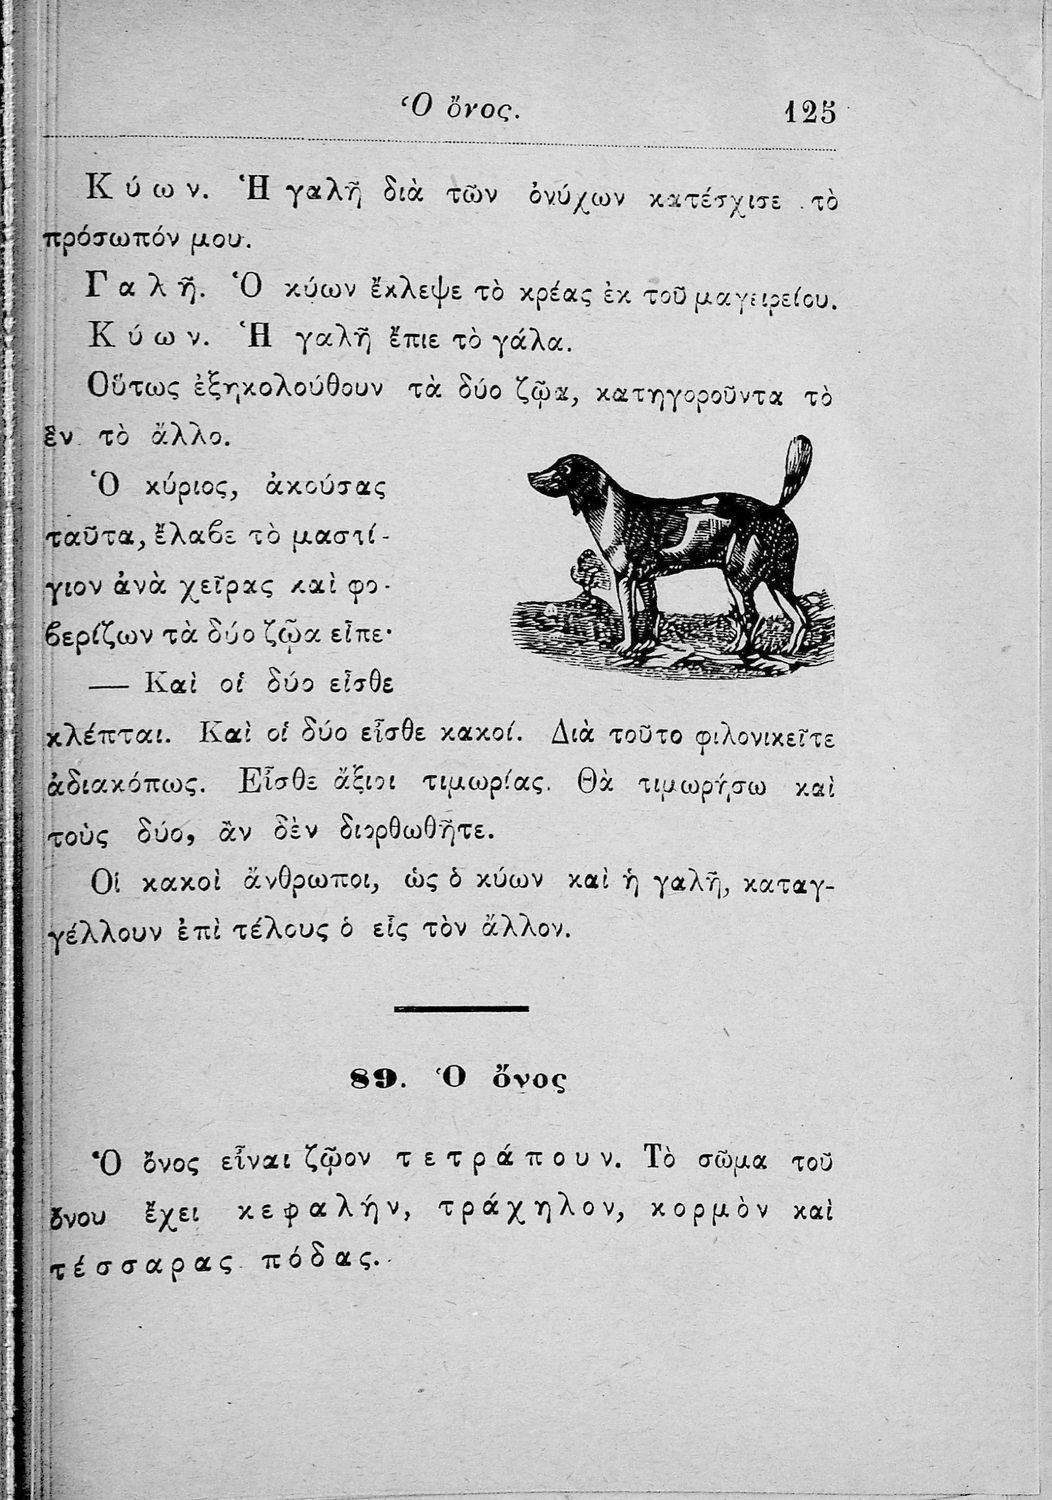 Ὁ ὄνος. 125
Κύων. Ἡ γαλῆ διὰ τῶν ὀνύχων κατέσχισε τὸ
πρόσωπόν μου.
Γαλῆ. Ὁ κύων ἔκλεψε τὸ κρέας ἐκ τοῦ μαγειρείου.
Κύων. Ἡ γαλῆ ἔπιε τὸ γάλα.
Οὕτως ἐξηκολούθουν τὰ δύο ζῷα, κατηγοροῦντα τὸ
ἓν τὸ ἄλλο.
Ὁ κύριος, ἀκούσας
ταῦτα, ἔλαβε τὸ μαστί-
γιον ἀνὰ χεῖρας καὶ φο-
βερίζων τὰ δύο ζῷα εἶπε·
— Καὶ οἱ δύο εἶσθε
κλέπται. Καὶ οἱ δύο εἶσθε κακοί. Διὰ τοῦτο φιλονικεῖτε
ἀδιακόπως. Εἶσθε ἄξιοι τιμωρίας. Θὰ τιμωρήσω καὶ
τοὺς δύο, ἂν δὲν διορθωθῆτε.
Οἱ κακοὶ ἄνθρωποι, ὡς ὁ κύων καὶ ἡ γαλῆ, καταγ-
γέλλουν ἐπὶ τέλους ὁ εἷς τὸν ἄλλον.
89. Ὁ ὄνος
Ὁ ὄνος εἶναι ζῷον τετράπουν. Τὸ σῶμα τοῦ
ὄνου ἔχει κεφαλήν, τράχηλον, κορμὸν καὶ
τέσσαρας πόδας.